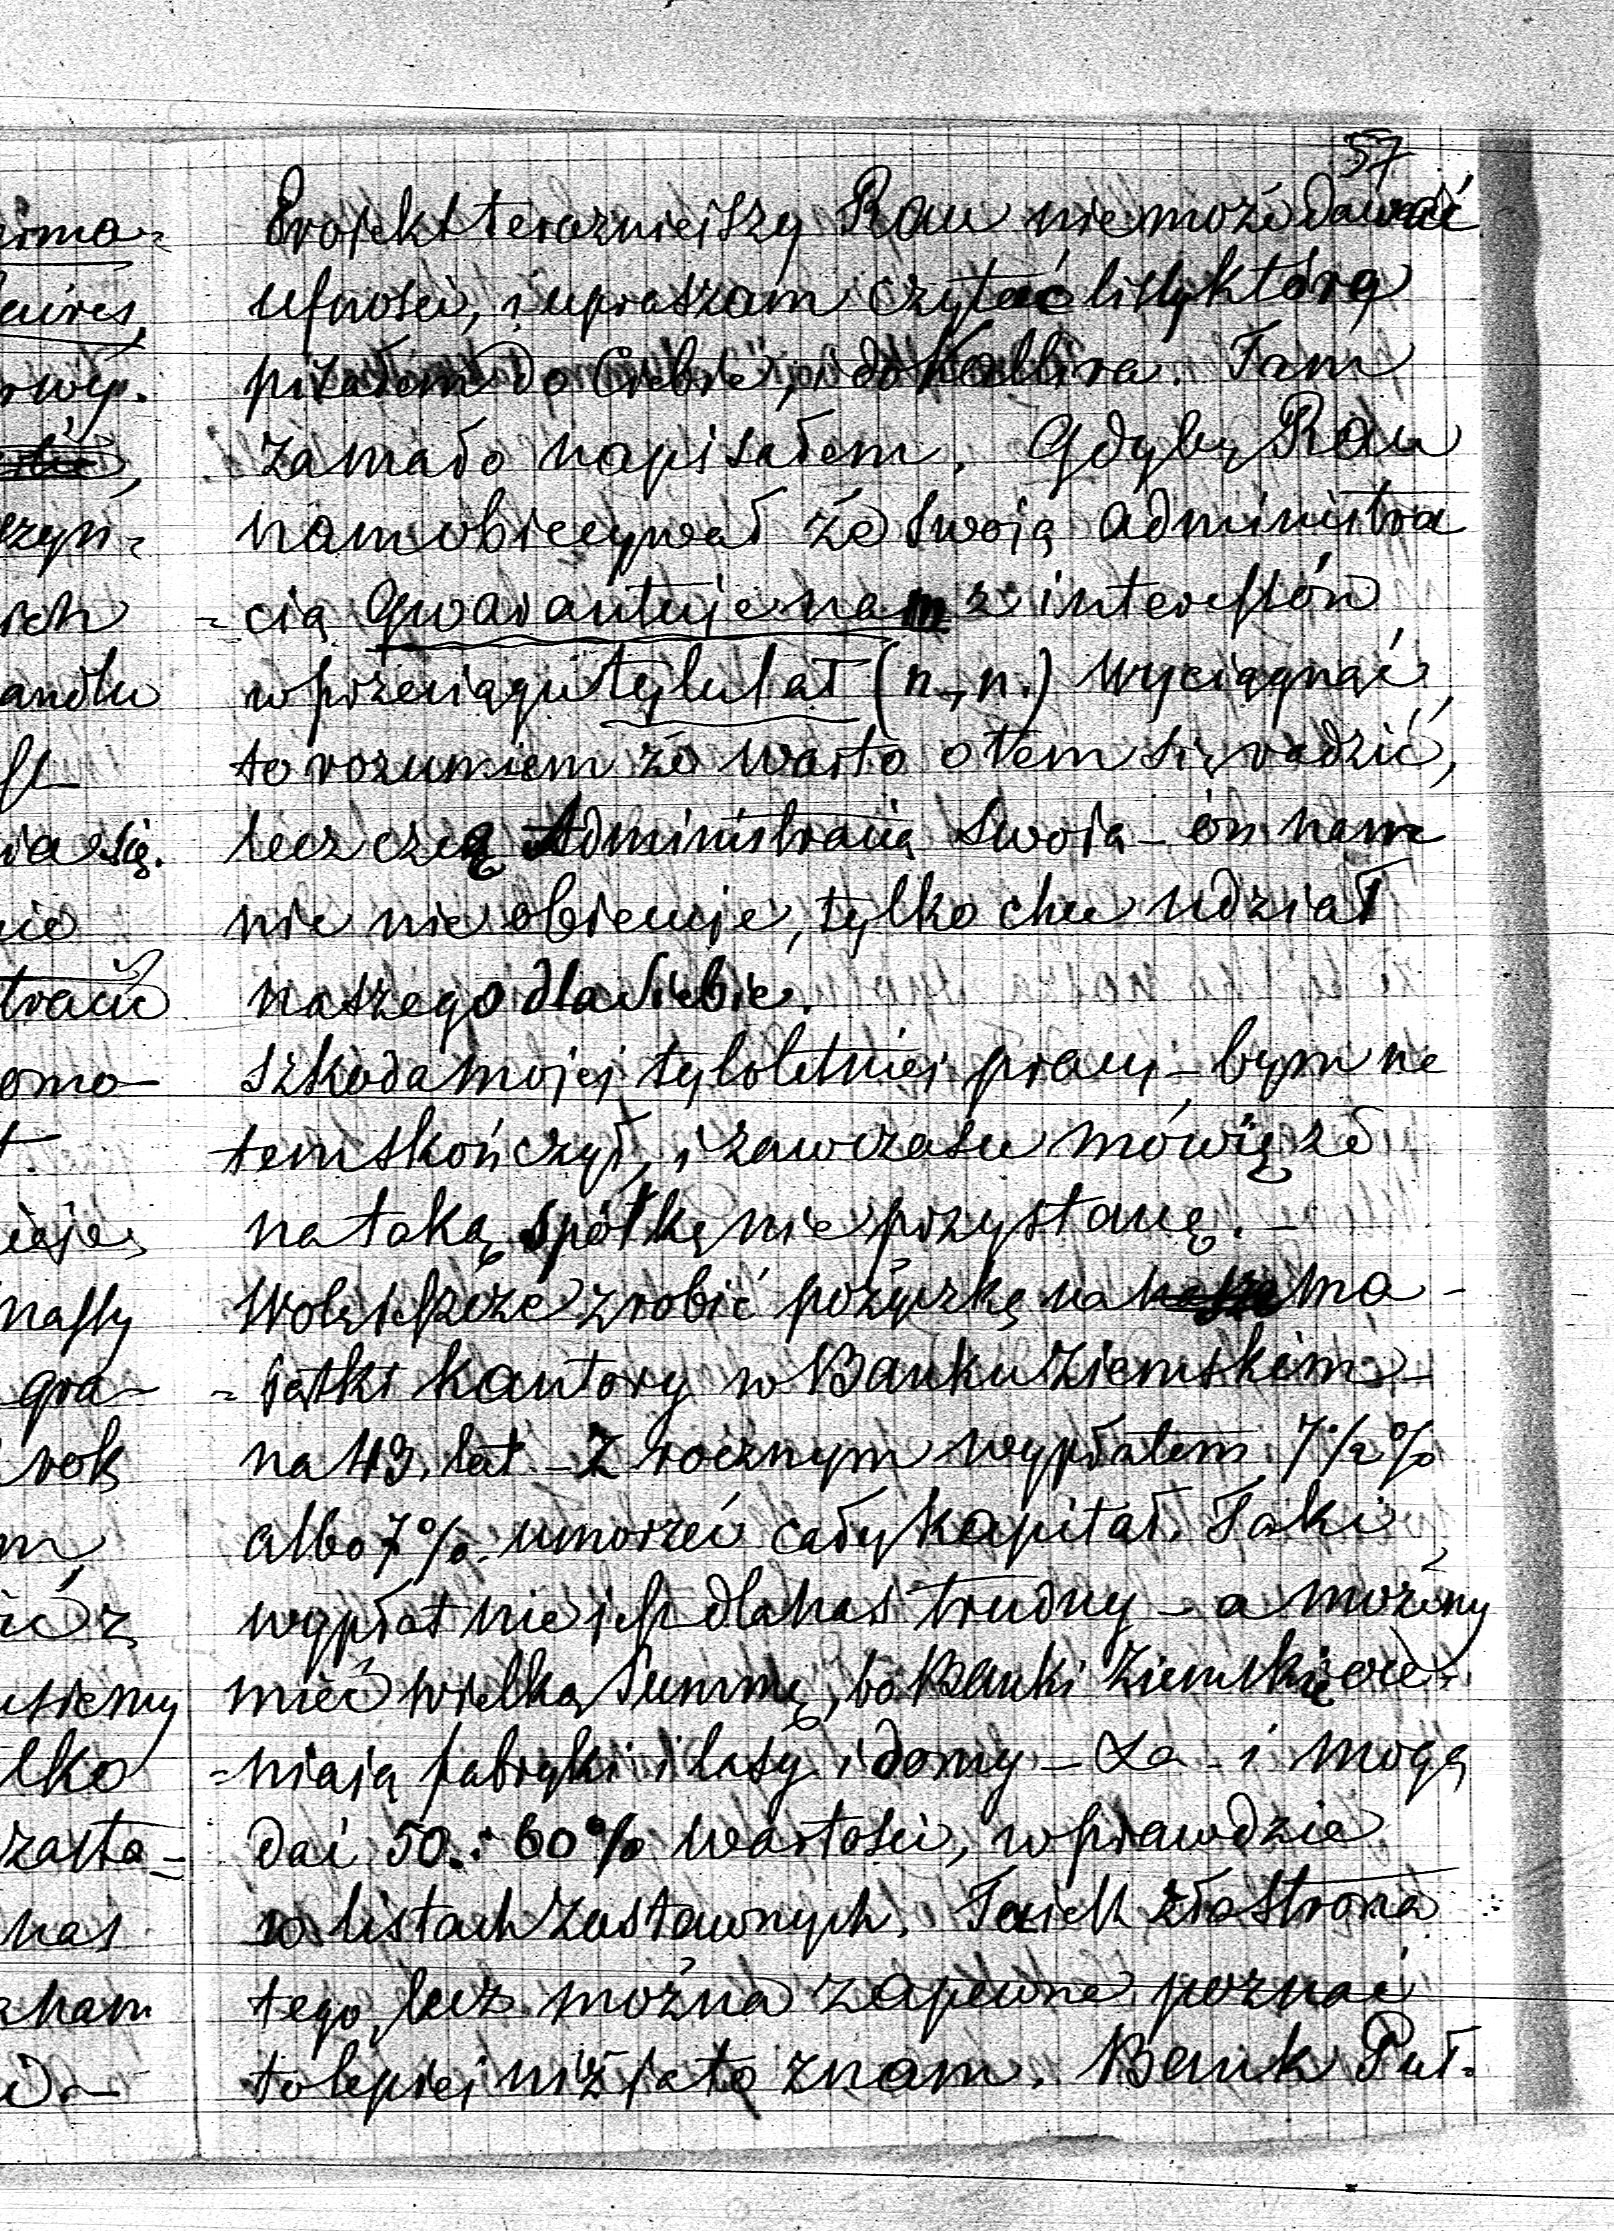 57
Projekt terazniejszy Rau nie może dawać
ufności, i upraszam czytać listy którą
pisałem do Ciebie, i do Kallira. Tam
za mało napisałem. Gdyby Rau
nam obiecywał że swoją administra
=cią gwarantuje nam z interessów
w przeciągu tylu lat (n, n.) wyciągnąć,
to rozumiem że warto o tem się radzić,
lecz Administracią swoią – ón nam
nic nie obiecuje, tylko chce udział
naszego dla Siebie.
szkoda mojej tyloletniej pracy – bym na
tem skończył, i zawczasu mówię że
na taką spółkę nie przystanę. –
Wolę zrobić pożyczkę na ma-
=jątki kantory w Banku Ziemskim –
na 43. lat – z rocznym wypłatem 7½%
albo 7%. umorzeć cały kapitał. Taki
wypłat nie jest dla nas trudny – a możemy
mieć wielką Summę, bo Banki Ziemskię oce-
=niają fabryki i lasy i domy – &a – i mogą
dać 50.: 60% wartości, w prawdzie
w listach zastawnych. Ta jest zła strona
tego, lecz można zapewne poznać
to lepiej niż ja to znam. Bank Puł.